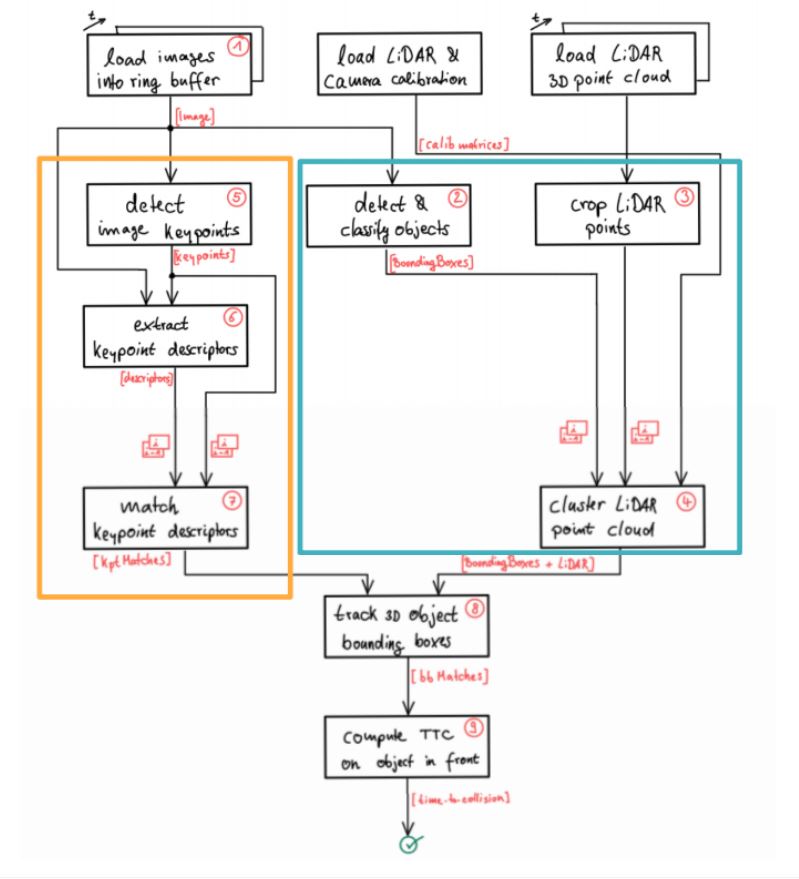 t
load images
into ring buffer
1
load LiDAR &
Camera calibration
t
load LiDAR
3D point cloud
[Image]
[calib matrices]
detect
image keypoints
5
detect &
classify objects
2
crop LiDAR
points
3
[keypoints]
[BoundingBoxes]
extract
keypoint descriptors
6
[descriptors]
i
i-1
i
i-1
i
i-1
i
i-1
match
keypoint descriptors
7
cluster LiDAR
point cloud
4
[kpt Matches]
[BoundingBoxes + LiDAR]
track 3D object
bounding boxes
8
[bb Matches]
compute TTC
on object in front
9
[time-to-collision]